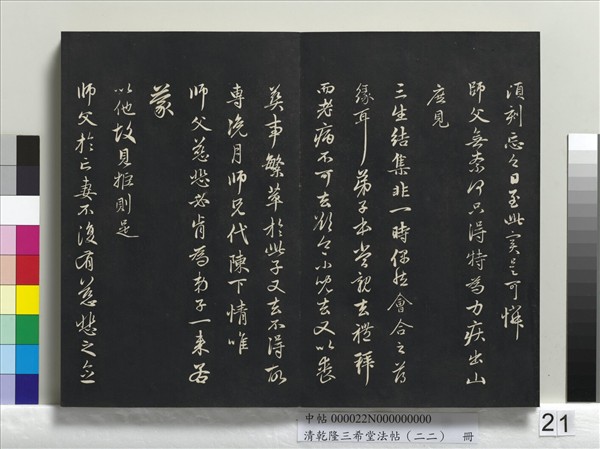 頃刻忘之日至此實是可憐
師父無柰何只得特為力疾出山
庶見
三生結集非一時偶然會合之薄
緣耳弟子本當親去禮拜
而老病不可去欲令小兒去又以喪
葬事繁萃於此子又去不得所
專浼月師兄代陳下情唯
師父慈悲必肯為弟子一來若
蒙
以他故見拒則是
師父於亡妻不復有慈愍之念
中帖 000022N000000000
清乾隆三希堂法帖(二二) 冊
21